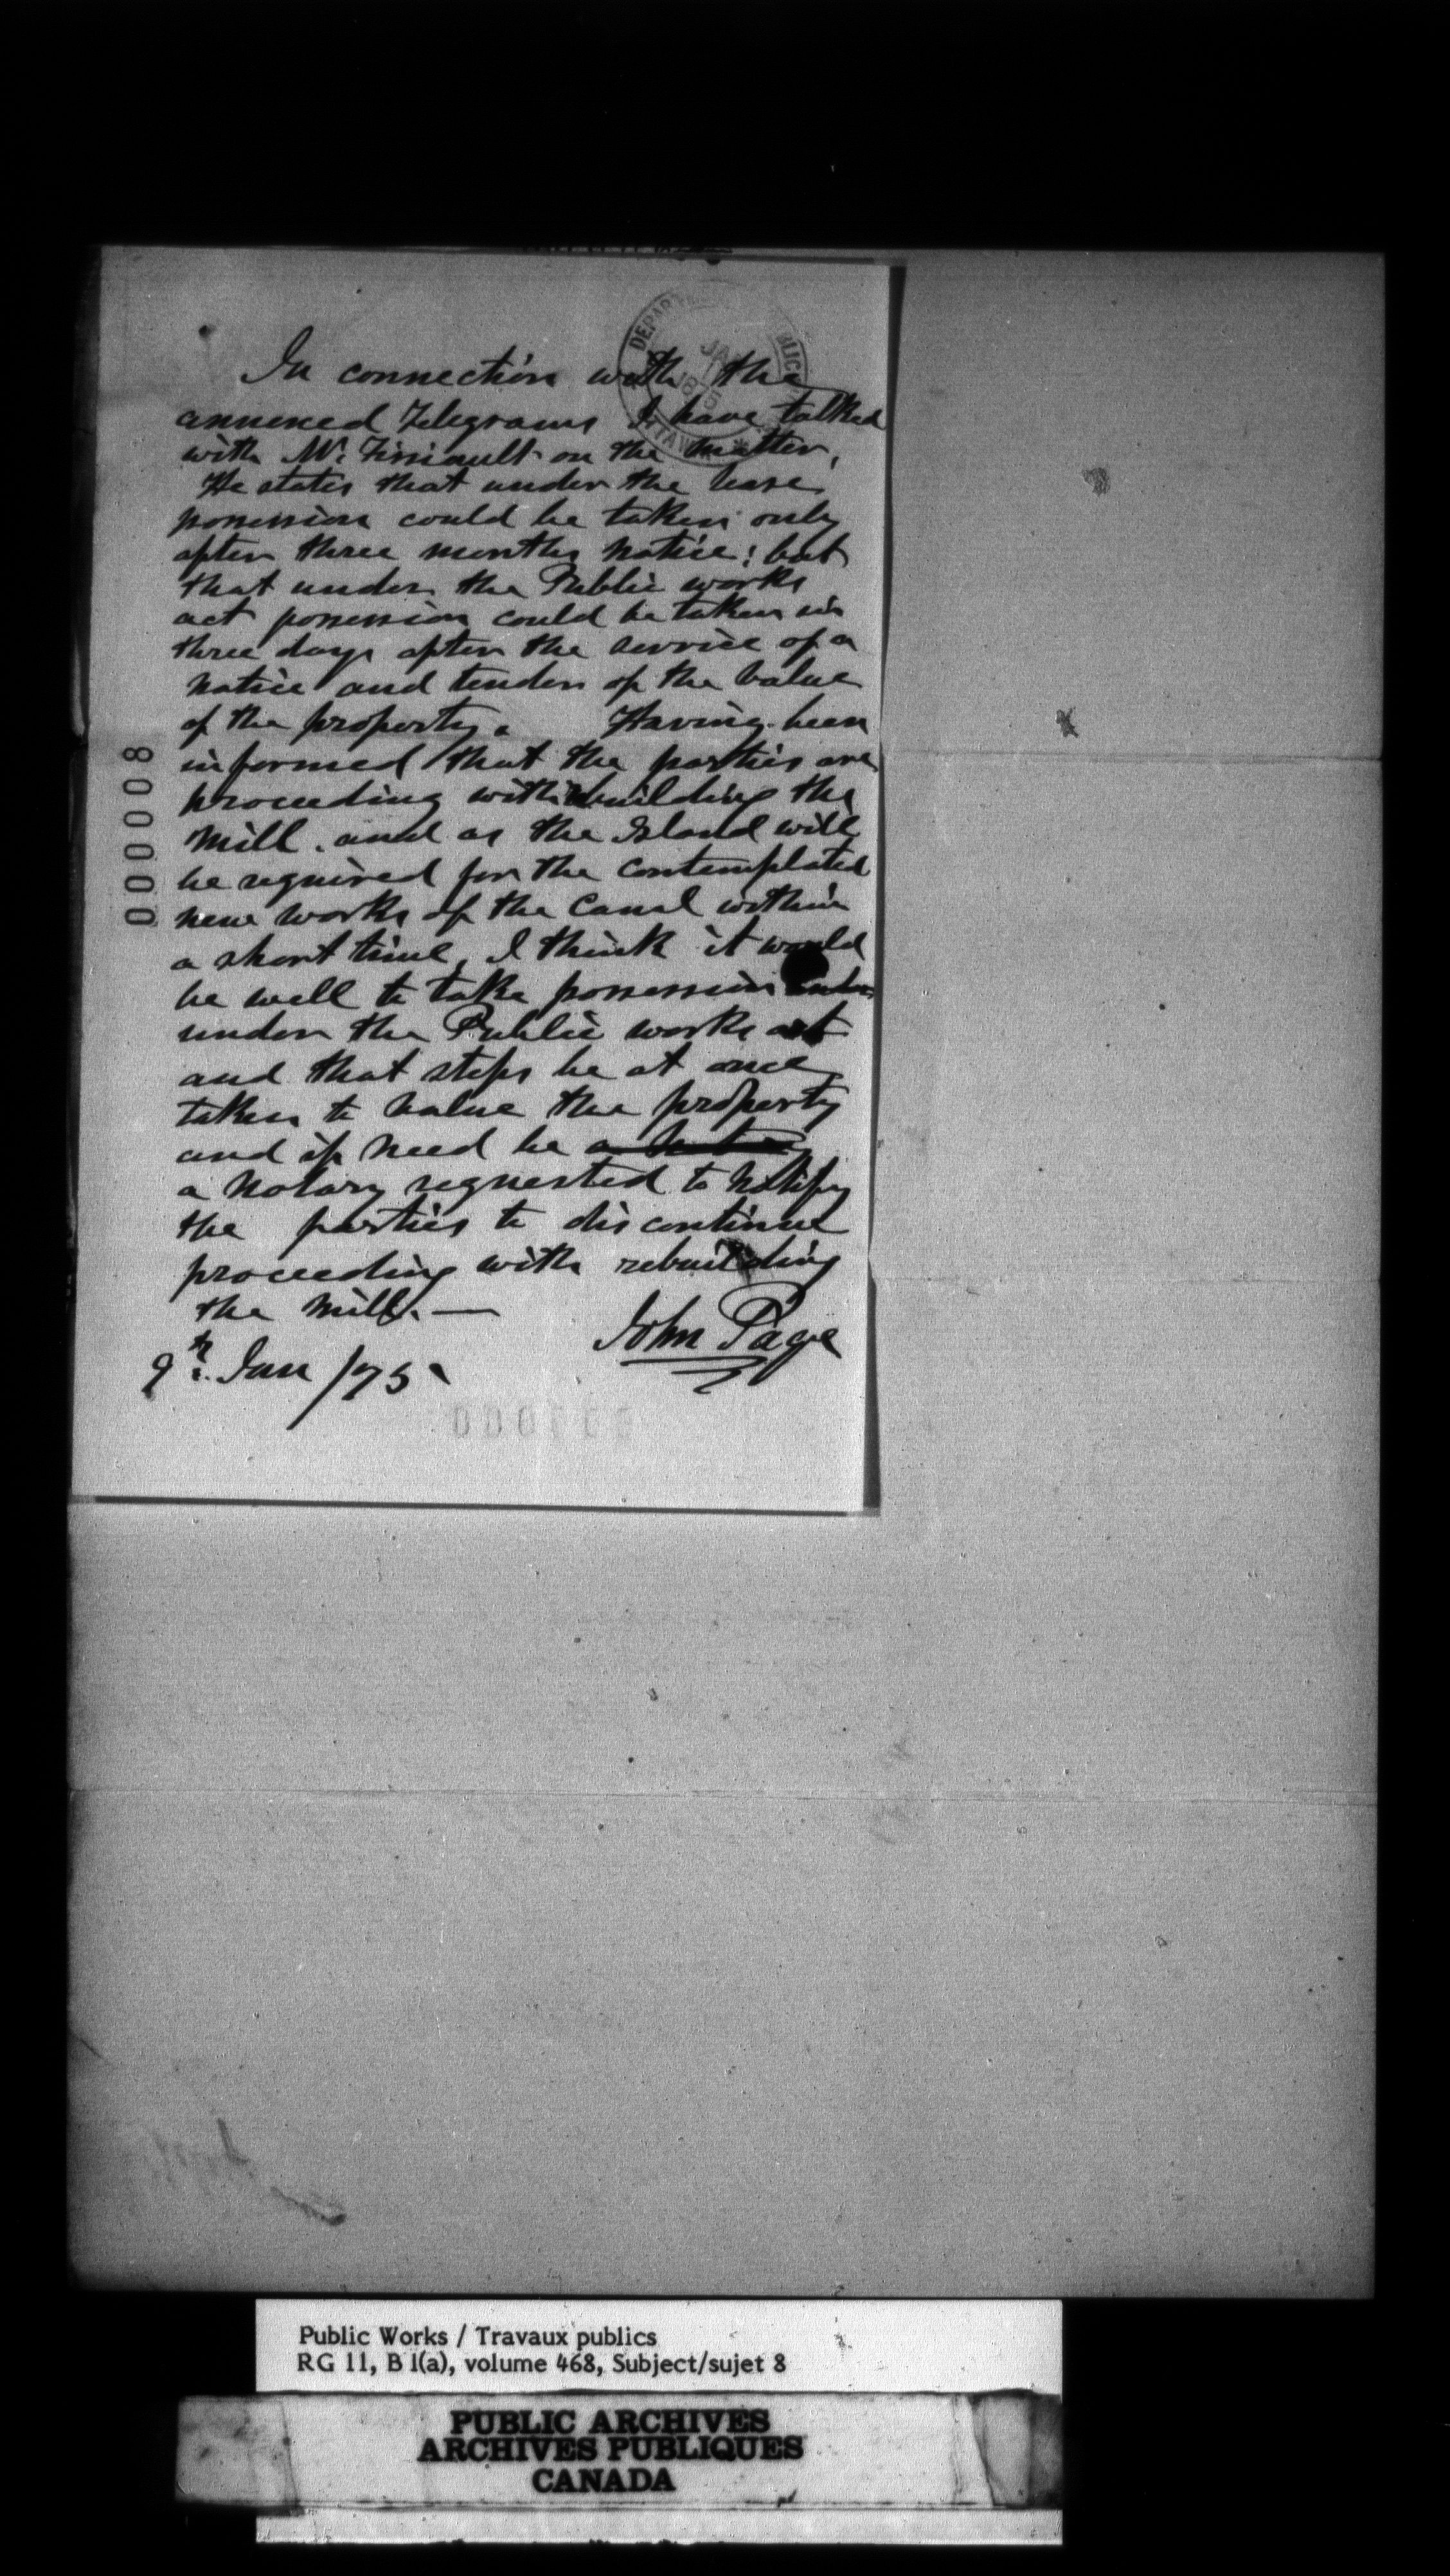 In connection with the
annexed Telegrams I have talked
with Mr. on the matter,
He states that under the lease
possession could be taken only
after three months notice; but
that under the Public works
act possession could be taken in
three days after the service of a
notice and tender of the value
of the property. Having been
informed that the parties are
proceeding with building the
mill. and as the Island will
be required for the contemplated
new works of the Canal within
a short time, I think it would
be well to take possession
under the Public works act
and that steps be at once
taken to value the property
and if need be
a Notary requested to notify
the parties to discontinue
proceeding with rebuilding
the mill. —
John Page
9th. Jan /75
000008
Public Works / Travaux publics
RG 11, B 1(a), volume 468, Subject/sujet 8
PUBLIC ARCHIVES
ARCHIVES PUBLIQUES
CANADA